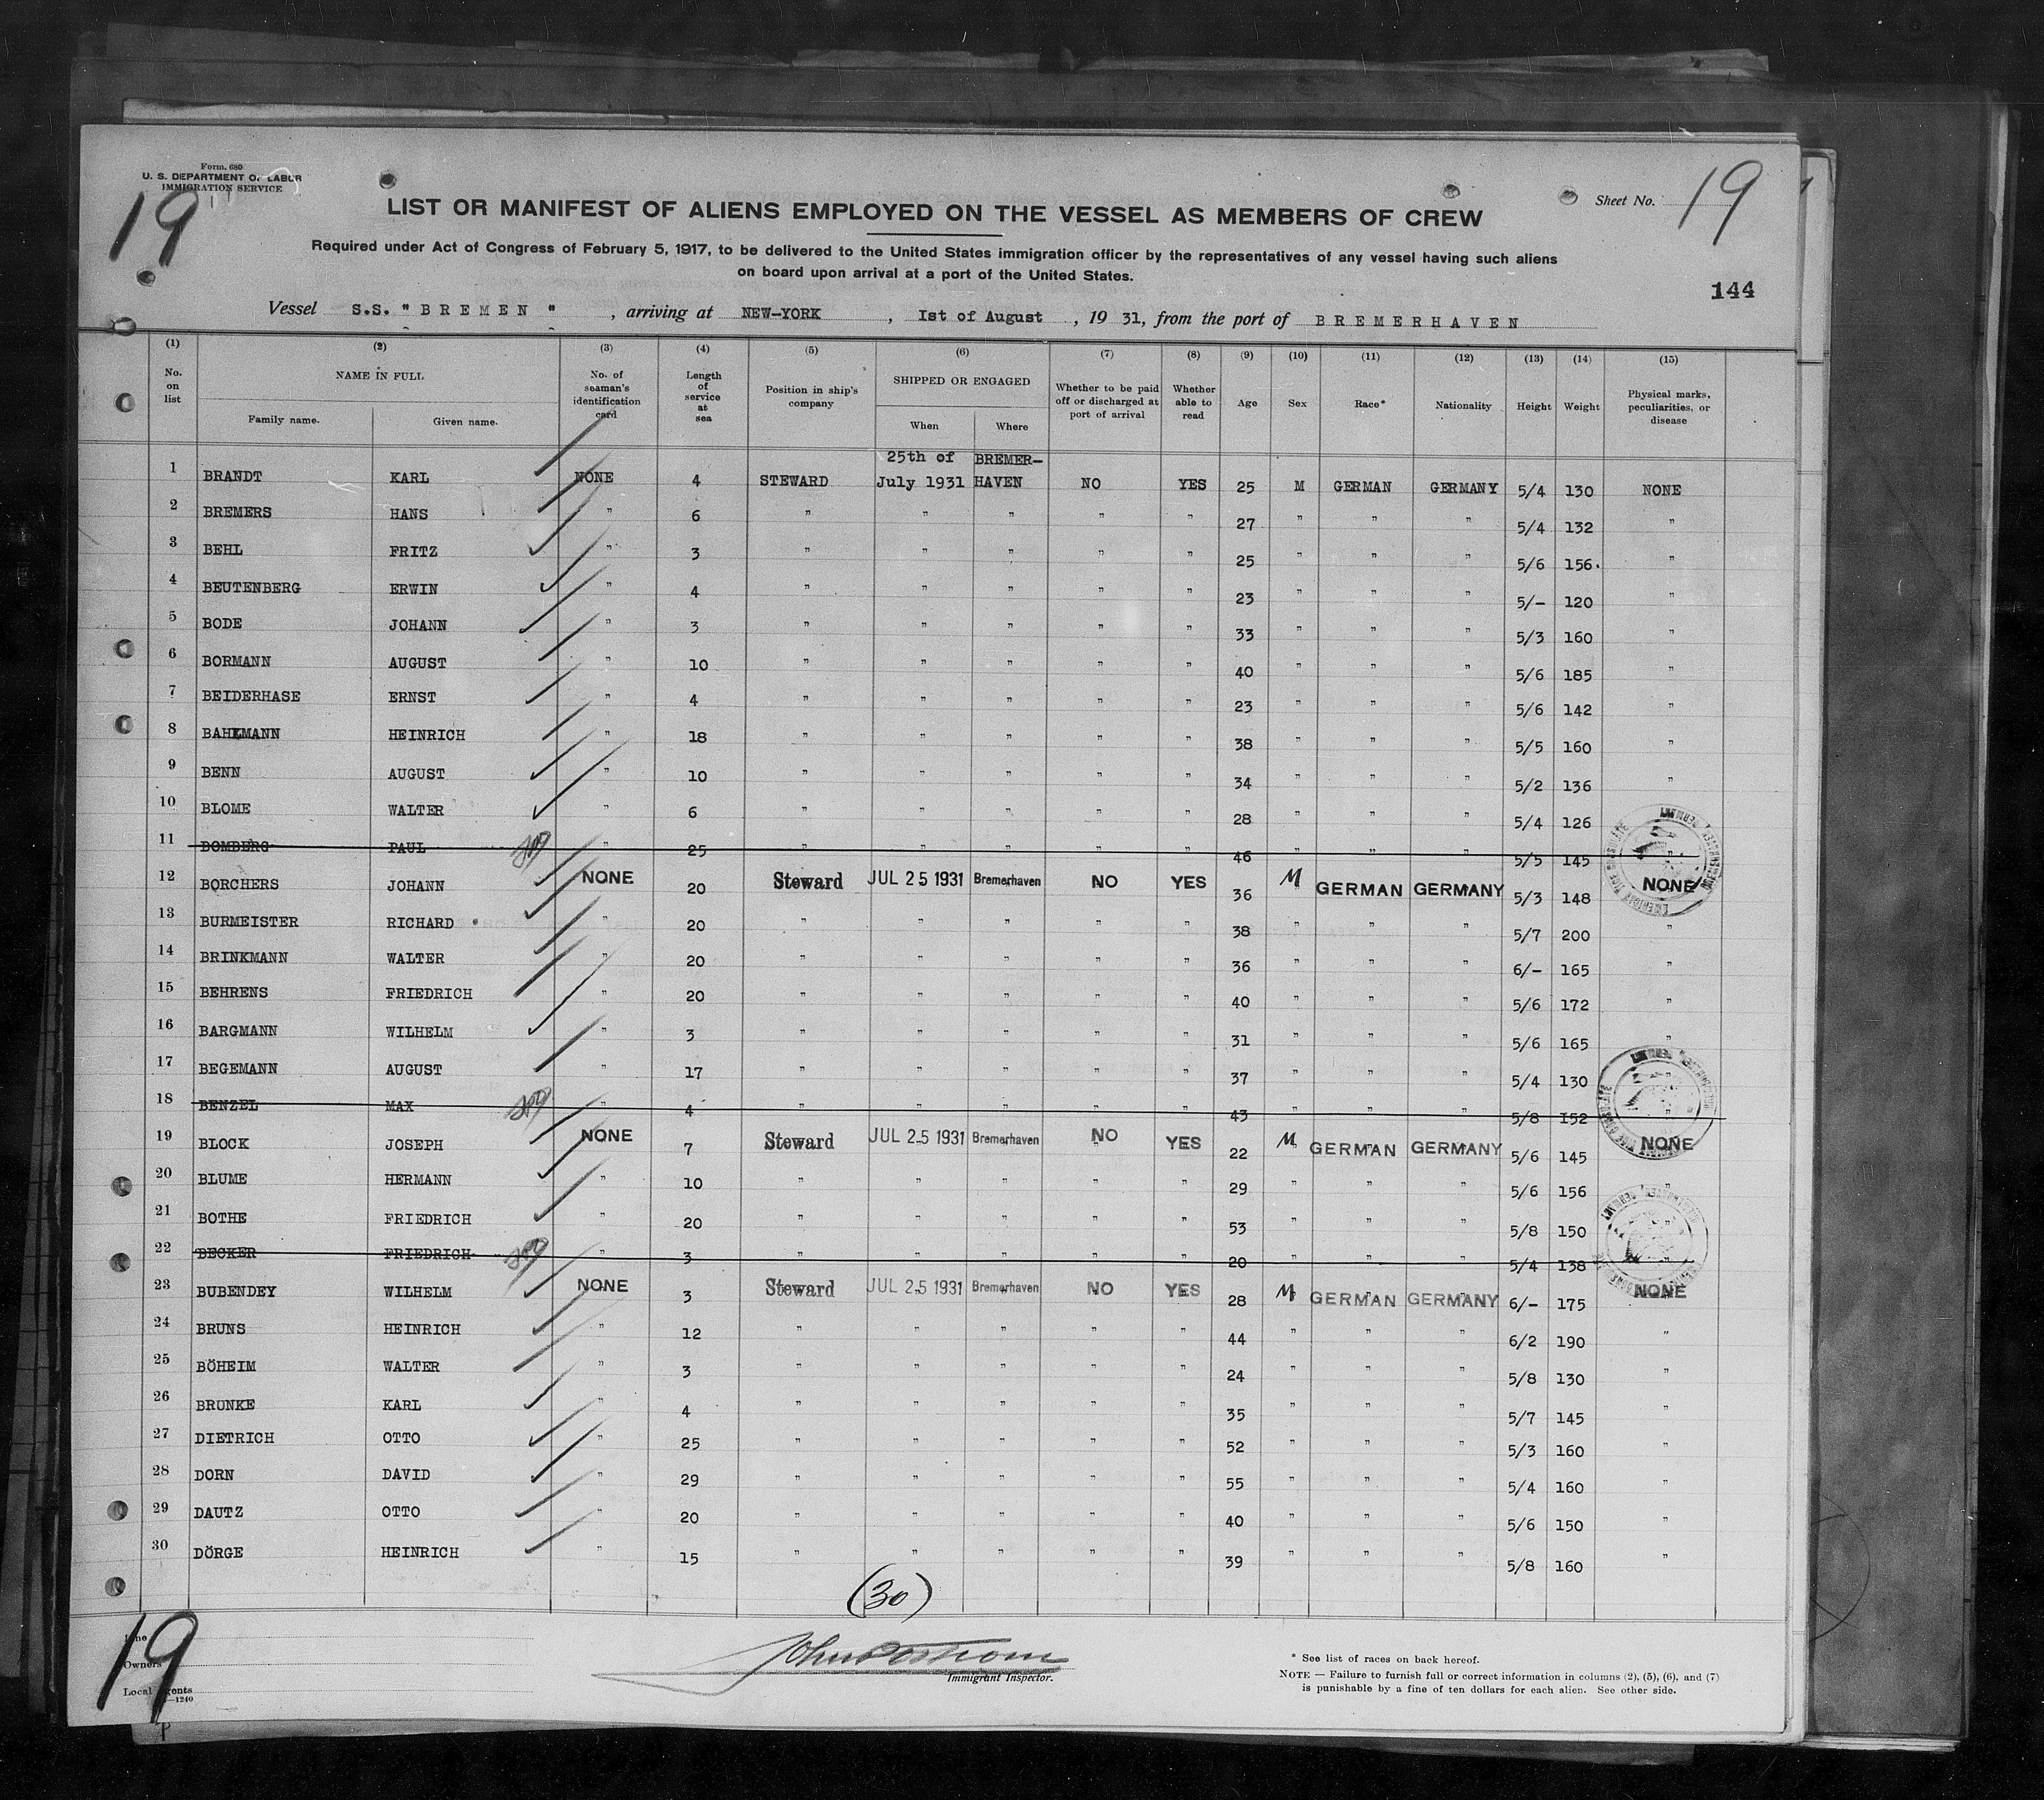 Form. 680
U. S. DEPARTMENT OF LABOR
IMMIGRATION SERVICE
19
Sheet No. 19
LIST OR MANIFEST OF ALIENS EMPLOYED ON THE VESSEL AS MEMBERS OF CREW
Required under Act of Congress of February 5, 1917, to be delivered to the United States immigration officer by the representatives of any vessel having such aliens
on board upon arrival at a port of the United States.
144
Vessel S.S. "BREMEN", arriving at NEW-YORK, Ist of August, 19 31, from the port of BREMERHAVEN
(1) (2) (3) (4) (5) (6) (7) (8) (9) (10) (11) (12) (13) (14) (15)
No. on list NAME IN FULL Family name. Given name. No. of seaman's identification card Length of service at sea Position in ship's company SHIPPED OR ENGAGED When Where Whether to be paid off or discharged at port of arrival Whether able to read Age Sex Race* Nationality Height Weight Physical marks, peculiarities, or disease
1 BRANDT KARL NONE 4 STEWARD 25th of July 1931 BREMER-HAVEN NO YES 25 M GERMAN GERMANY 5/4 130 NONE
2 BREMERS HANS " 6 " " " " " 27 " " " 5/4 132 "
3 BEHL FRITZ " 3 " " " " " 25 " " " 5/6 156. "
4 BEUTENBERG ERWIN " 4 " " " " " 23 " " " 5/- 120 "
5 BODE JOHANN " 3 " " " " " 33 " " " 5/3 160 "
6 BORMANN AUGUST " 10 " " " " " 40 " " " 5/6 185 "
7 BEIDERHASE ERNST " 4 " " " " " 23 " " " 5/6 142 "
8 BAHLMANN HEINRICH " 18 " " " " " 38 " " " 5/5 160 "
9 BENN AUGUST " 10 " " " " " 34 " " " 5/2 136 "
10 BLOME WALTER " 6 " " " " " 28 " " " 5/4 126 "
11 DOMBERG PAUL " 25 " " " " " 46 " " " 5/5 145 "
12 BORCHERS JOHANN NONE 20 Steward JUL 25 1931 Bremerhaven NO YES 36 M GERMAN GERMANY 5/3 148 NONE
13 BURMEISTER RICHARD " 20 " " " " " 38 " " " 5/7 200 "
14 BRINKMANN WALTER " 20 " " " " " 36 " " " 6/- 165 "
15 BEHRENS FRIEDRICH " 20 " " " " " 40 " " " 5/6 172 "
16 BARGMANN WILHELM " 3 " " " " " 31 " " " 5/6 165 "
17 BEGEMANN AUGUST " 17 " " " " " 37 " " " 5/4 130 "
18 BENZEL MAX " 4 " " " " " 43 " " " 5/8 152 "
19 BLOCK JOSEPH NONE 7 Steward JUL 25 1931 Bremerhaven NO YES 22 M GERMAN GERMANY 5/6 145 NONE
20 BLUME HERMANN " 10 " " " " " 29 " " " 5/6 156 "
21 BOTHE FRIEDRICH " 20 " " " " " 53 " " " 5/8 150 "
22 BECKER FRIEDRICH " 3 " " " " " 20 " " " 5/4 138
23 BUBENDEY WILHELM NONE 3 Steward JUL 25 1931 Bremerhaven NO YES 28 M GERMAN GERMANY 6/- 175 NONE
24 BRUNS HEINRICH " 12 " " " " " 44 " " " 6/2 190 "
25 BÖHEIM WALTER " 3 " " " " " 24 " " " 5/8 130 "
26 BRUNKE KARL " 4 " " " " " 35 " " " 5/7 145 "
27 DIETRICH OTTO " 25 " " " " " 52 " " " 5/3 160 "
28 DORN DAVID " 29 " " " " " 55 " " " 5/4 160 "
29 DAUTZ OTTO " 20 " " " " " 40 " " " 5/6 150 "
30 DÖRGE HEINRICH " 15 " " " " " 39 " " " 5/8 160 "
(30)
19
Owners
Local Agents
—1240
Immigrant Inspector.
* See list of races on back hereof.
NOTE — Failure to furnish full or correct information in columns (2), (5), (6), and (7)
is punishable by a fine of ten dollars for each alien. See other side.